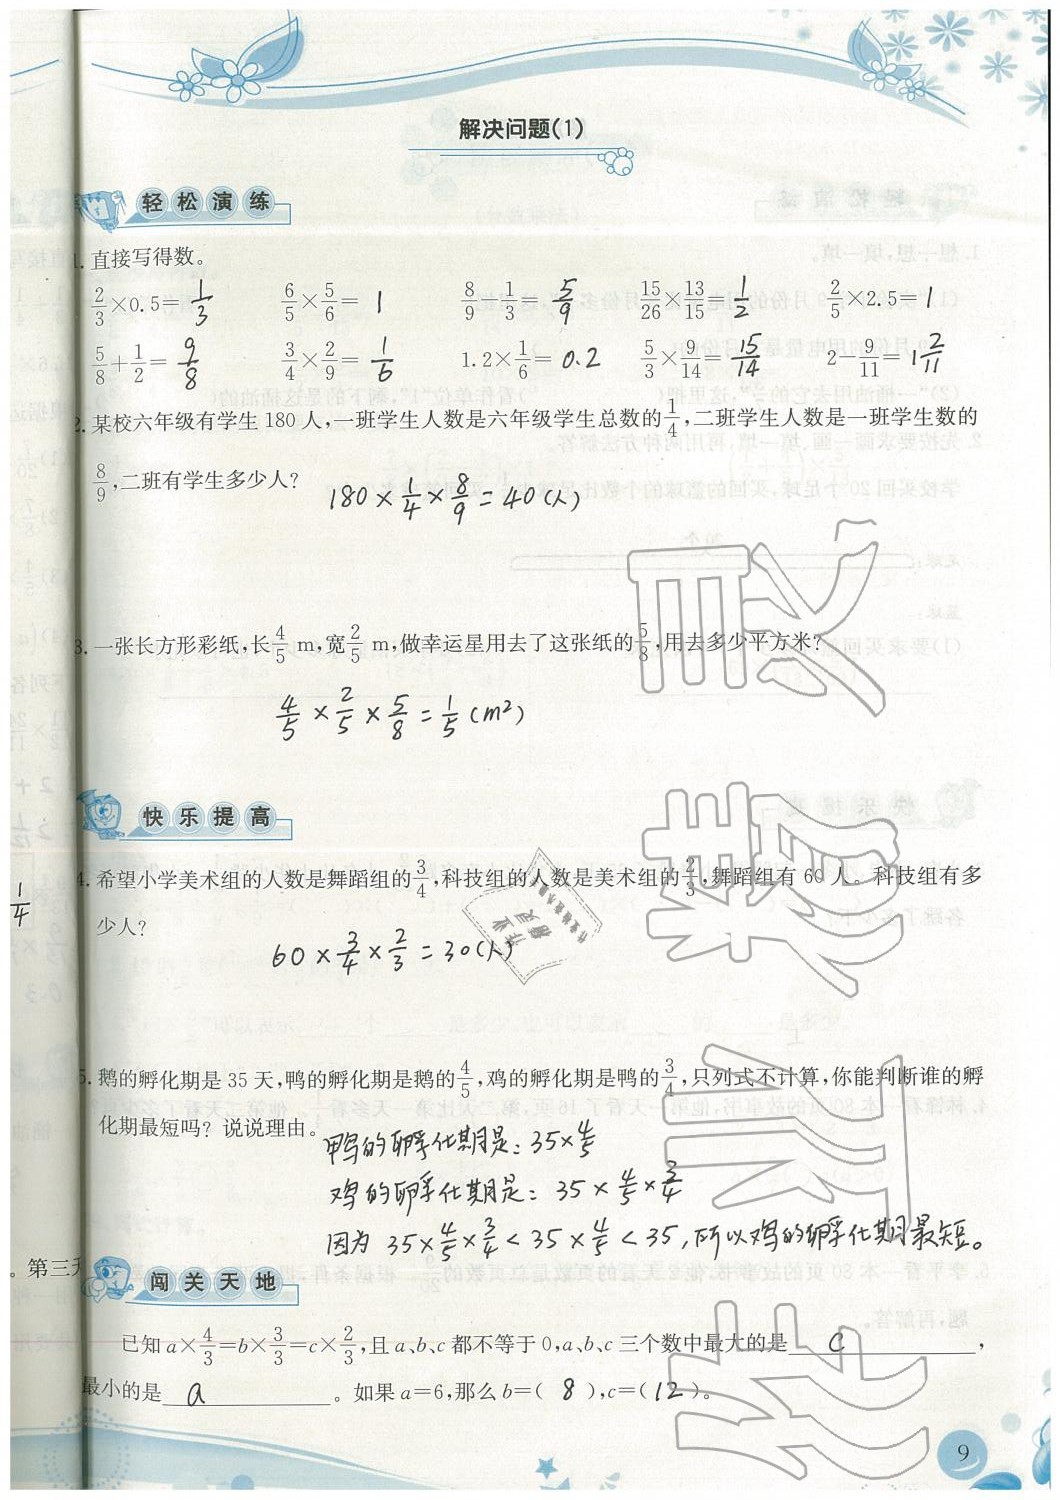 解决问题(1)
轻松演练
1. 直接写得数。
2/3×0.5= 1/3 6/5×5/6= 1 8/9-1/3= 5/9 15/26×13/15= 1/2 2/5×2.5= 1
5/8+1/2= 9/8 3/4×2/9= 1/6 1.2×1/6= 0.2 5/3×9/14= 15/14 2-9/11= 1 2/11
2. 某校六年级有学生180人,一班学生人数是六年级学生总数的1/4,二班学生人数是一班学生数的
8/9,二班有学生多少人?
180×1/4×8/9=40(人)
3. 一张长方形彩纸,长4/5 m,宽2/5 m,做幸运星用去了这张纸的5/8,用去多少平方米?
4/5×2/5×5/8=1/5(m²)
快乐提高
1/4
4. 希望小学美术组的人数是舞蹈组的3/4,科技组的人数是美术组的2/3,舞蹈组有60人。科技组有多
少人?
60×3/4×2/3=30(人)
5. 鹅的孵化期是35天,鸭的孵化期是鹅的4/5,鸡的孵化期是鸭的3/4,只列式不计算,你能判断谁的孵
化期最短吗?说说理由。
鸭的孵化期是:35×4/5
鸡的孵化期是:35×4/5×3/4
因为35×4/5×3/4<35×4/5<35,所以鸡的孵化期最短。
。第三天
闯关天地
已知a×4/3=b×3/3=c×2/3,且a、b、c都不等于0,a、b、c三个数中最大的是 c ,
最小的是 a 。如果a=6,那么b=( 8 ),c=( 12 )。
9